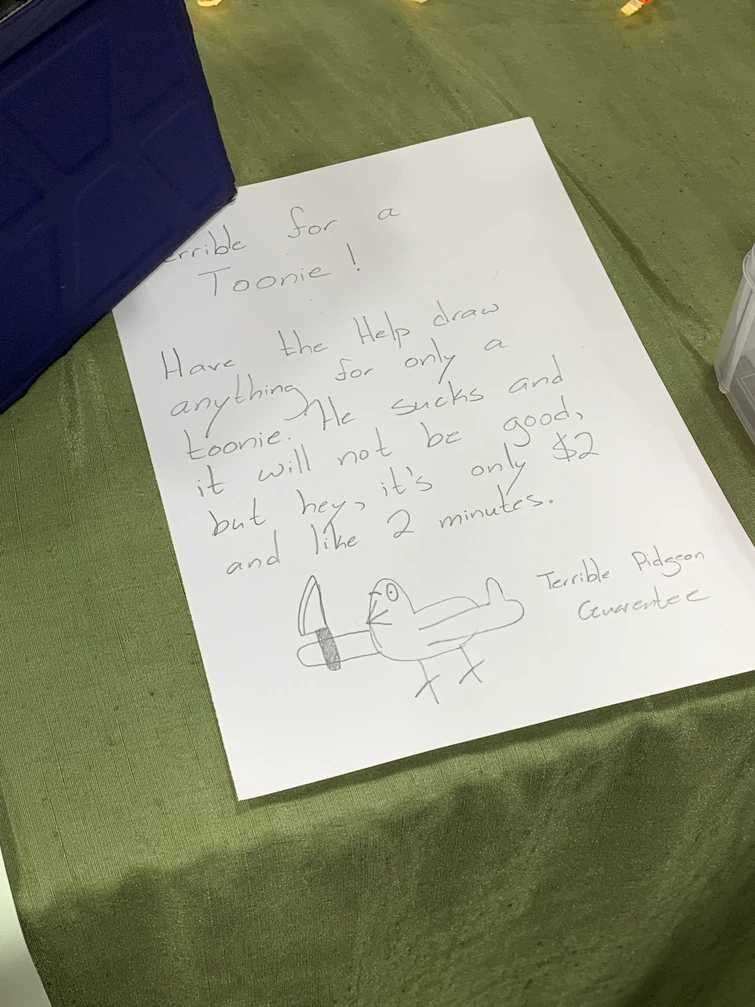 errible for a
Toonie!
Have the Help draw
anything for only a
toonie. He sucks and
it will not be good,
but hey, it's only $2
and like 2 minutes.
Terrible Pidgeon
Guarentee